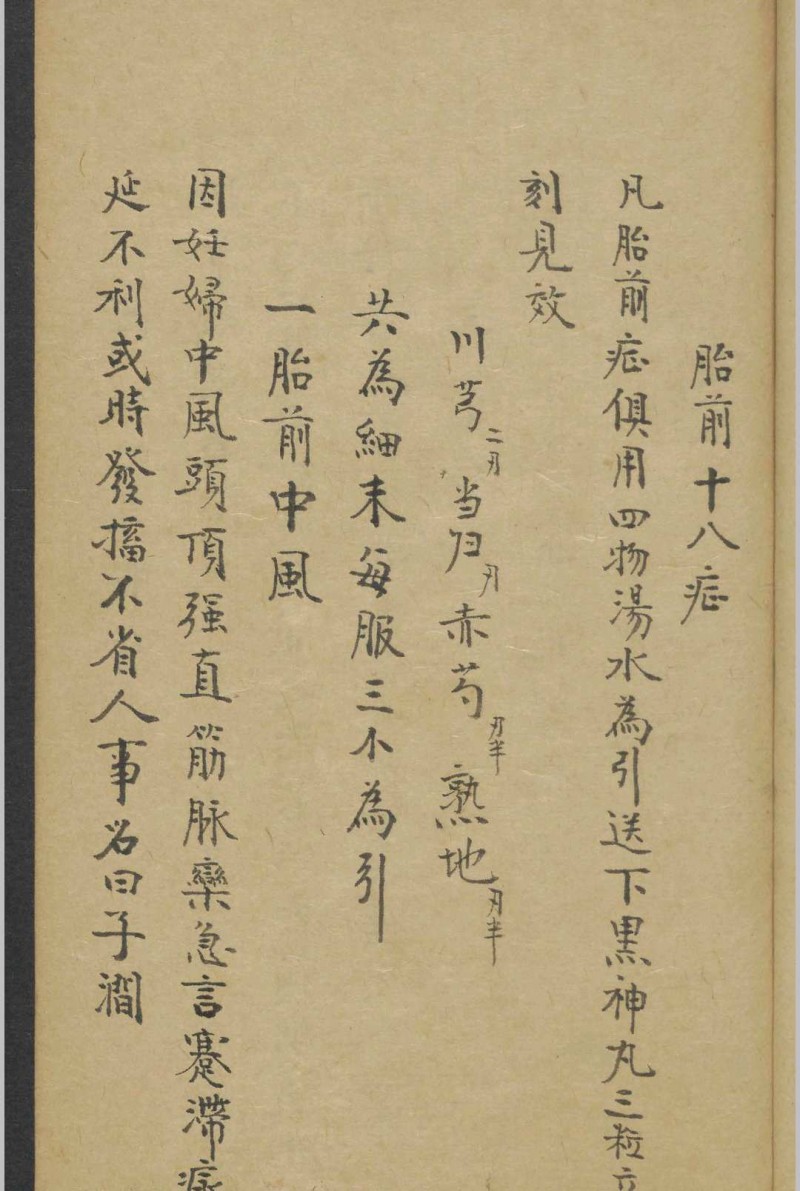 胎前十八症
凡胎前症俱用四物湯水為引送下黑神丸三粒立
刻見效
川芎二刄 当归刄 赤芍刄半 熟地刄半
共為細末每服三小為引
一胎前中風
因妊婦中風頭頂强直筋脉孿急言蹇滯痰
延不利或時發搐不省人事名曰子澗